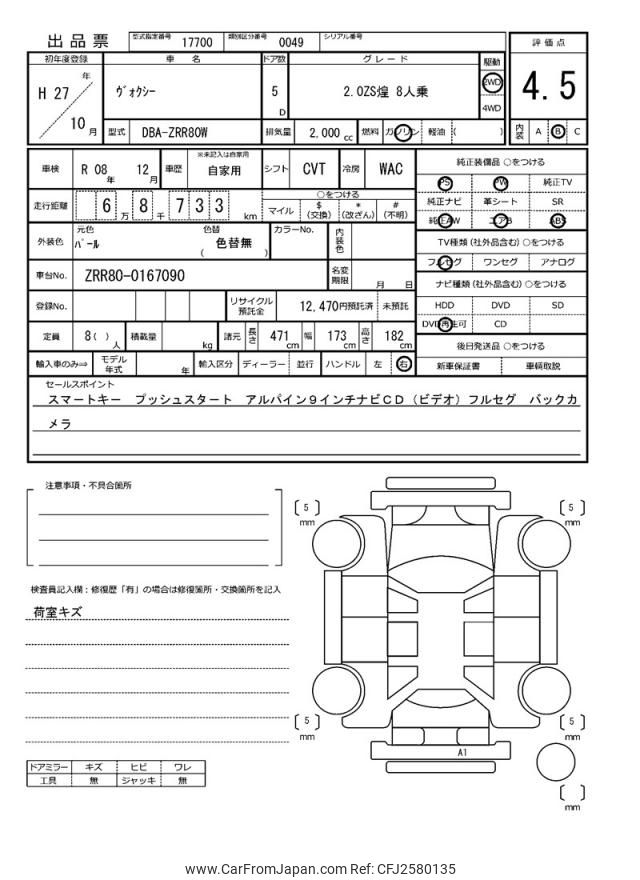 出品票 型式指定番号 17700 類別区分番号 0049 シリアル番号
評価点
4.5
内装 A B C
初年度登録 車名 ドア数 グレード 駆動
H 27 年 10 月 ヴォクシー 5 D 2.0ZS煌 8人乗 2WD 4WD
型式 DBA-ZRR80W 排気量 2,000 cc 燃料 ガソリン 軽油 ( )
車検 R 08 年 12 月 車歴 ※未記入は自家用 自家用 シフト CVT 冷房 WAC
走行距離 6 万 8 千 733 km ○をつける マイル $ (交換) * (改ざん) # (不明)
外装色 元色 パール 色替 ( 色替無 ) カラーNo. 内装色
車台No. ZRR80-0167090 名変期限 月 日
登録No. リサイクル預託金 12,470円預託済 未預託
定員 8( ) 人 積載量 kg 諸元 長さ 471 cm 幅 173 cm 高さ 182 cm
輸入車のみ⇒ モデル年式 年 輸入区分 ディーラー 並行 ハンドル 左 右
純正装備品 ○をつける
PS PW 純正TV
純正ナビ 革シート SR
純正AW エアB ABS
TV種類(社外品含む)○をつける
フルセグ ワンセグ アナログ
ナビ種類(社外品含む)○をつける
HDD DVD SD
DVD再生可 CD
後日発送品 ○をつける
新車保証書 車輌取説
セールスポイント
スマートキー プッシュスタート アルパイン9インチナビCD(ビデオ)フルセグ バックカ
メラ
注意事項・不具合箇所
検査員記入欄：修復歴「有」の場合は修復箇所・交換箇所を記入
荷室キズ
ドアミラー キズ ヒビ ワレ
工具 無 ジャッキ 無
5 mm
5 mm
5 mm
5 mm
A1
mm
www.CarFromJapan.com Ref: CFJ2580135